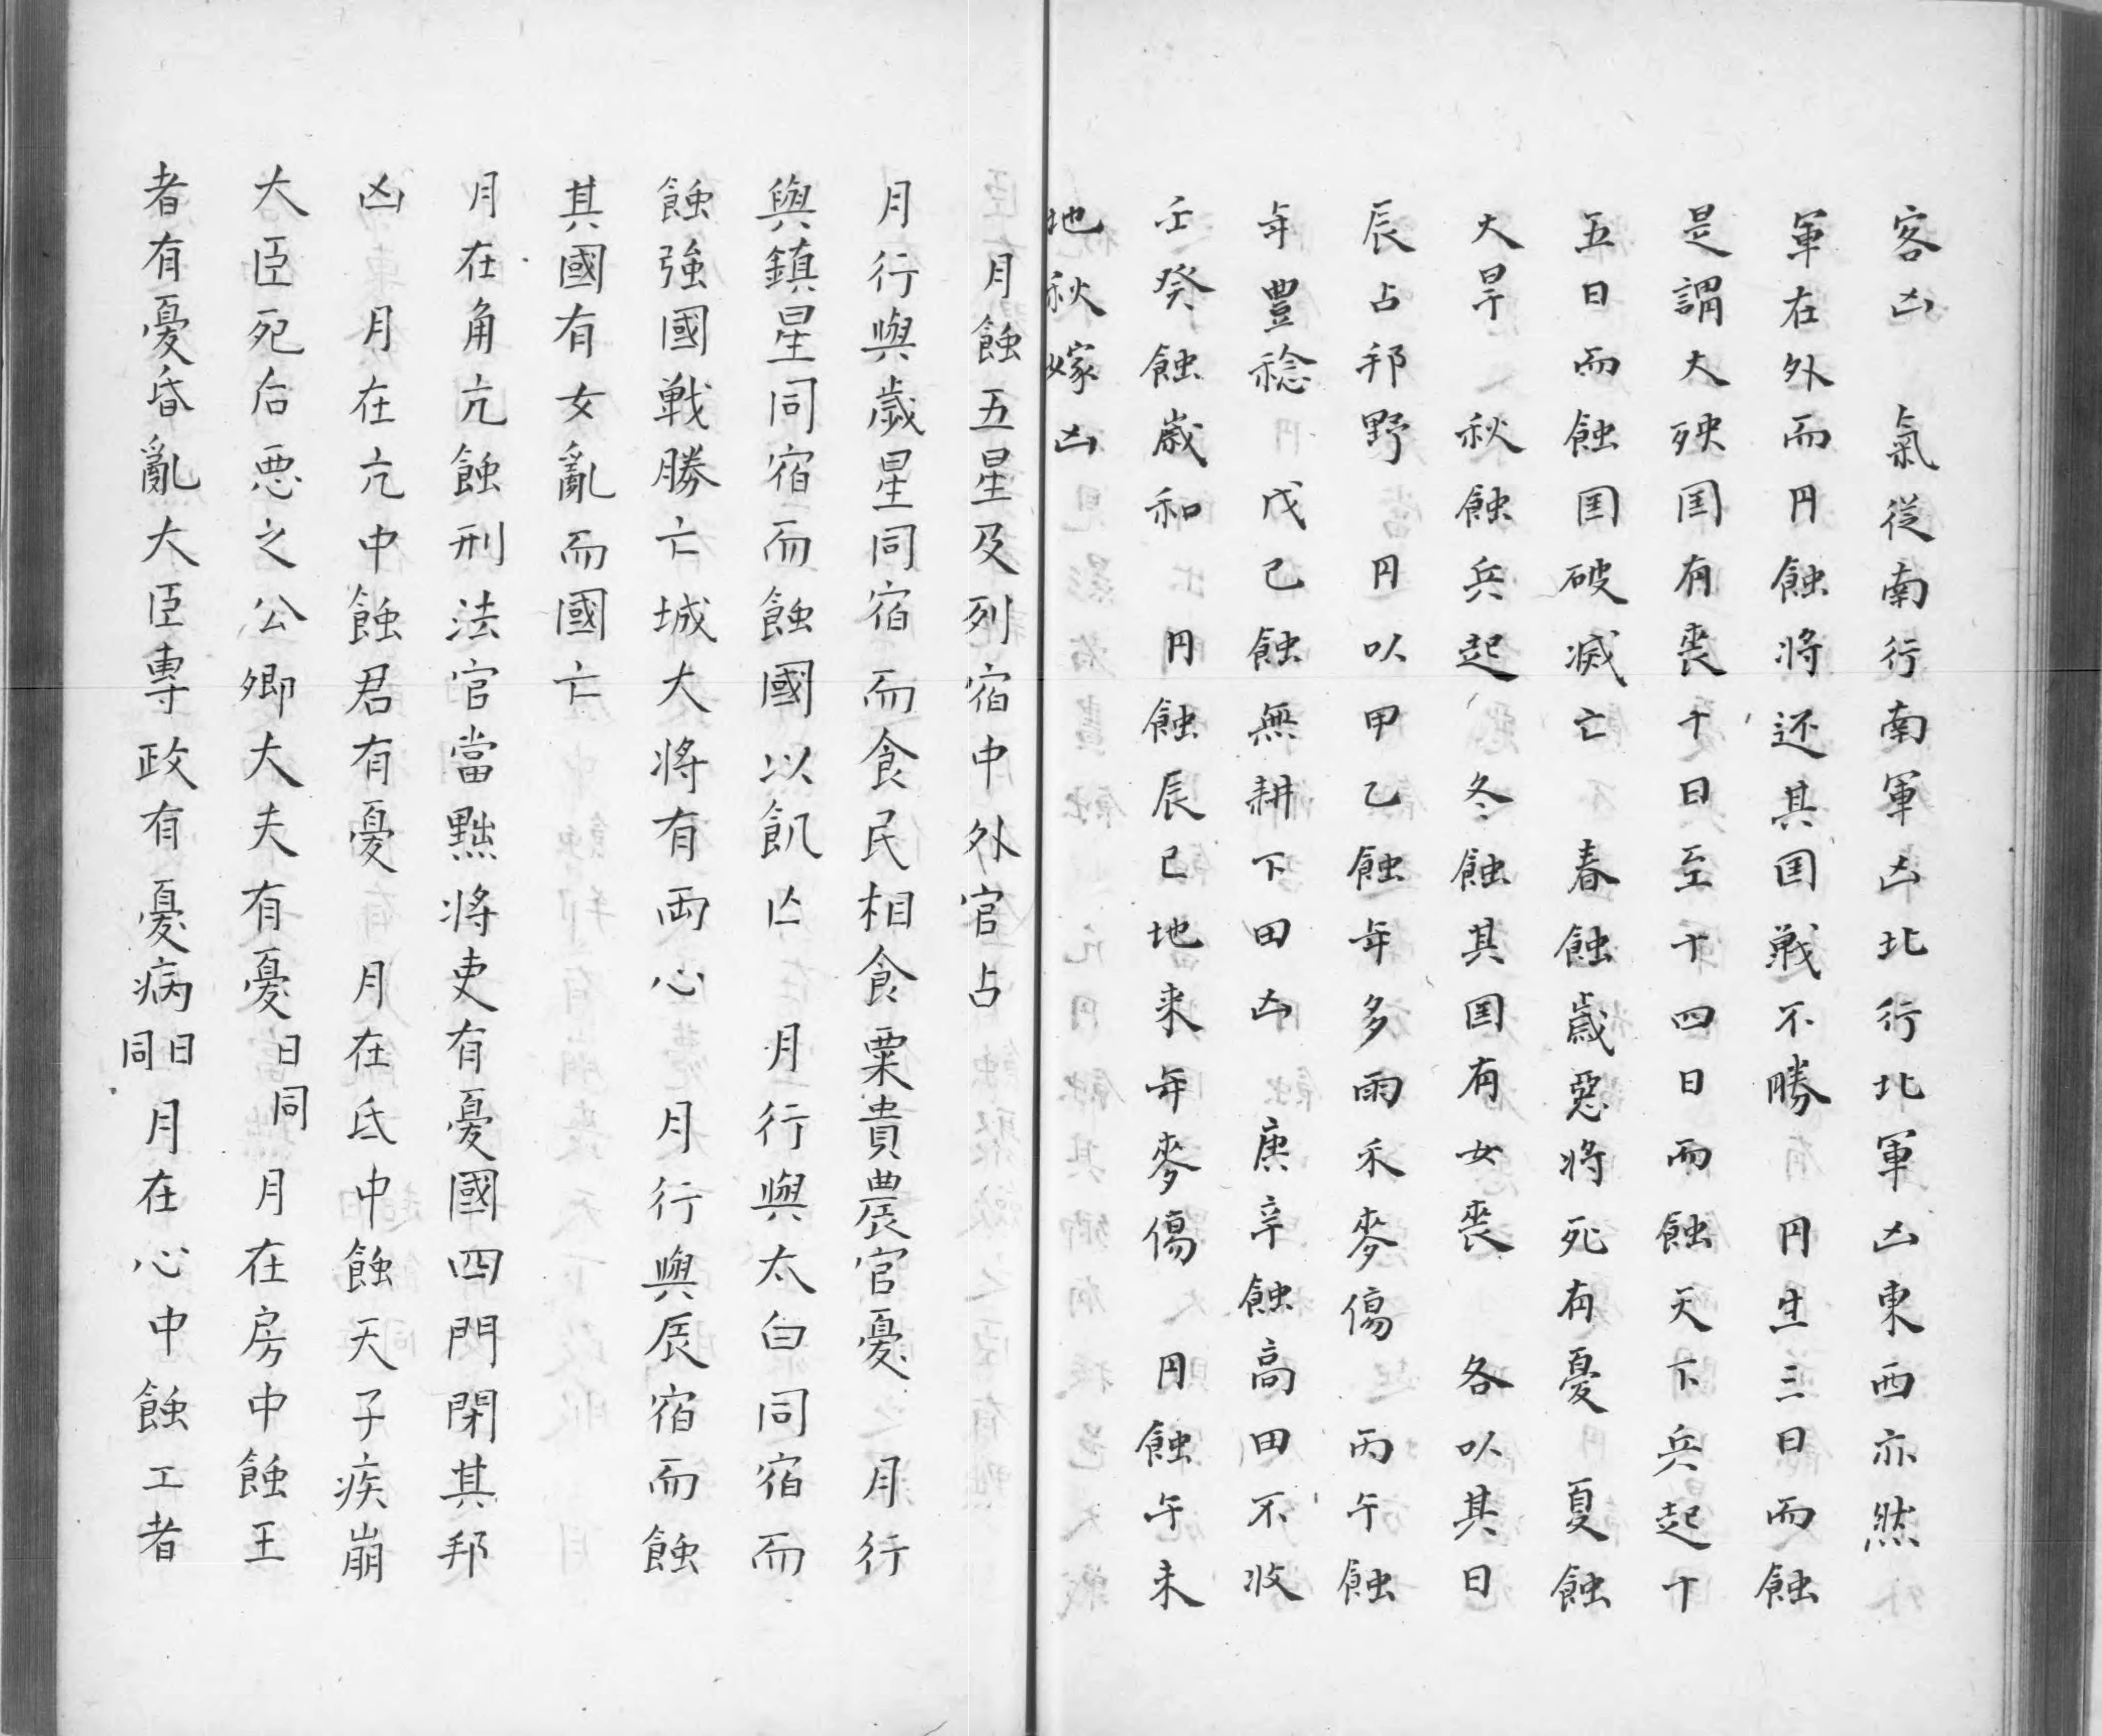 客凶　氣從南行南軍凶北行北軍凶東西亦然
軍在外而円蝕将还其囯戦不勝　円生三日而蝕
是謂大殃囯有喪十日至十四日而蝕天下兵起十
五日而蝕囯破滅亡　春蝕歳惡将死有憂　夏蝕
大旱　秋蝕兵起　冬蝕其囯有女喪　各以其日
辰占邦野　円以甲乙蝕年多雨禾麥傷　丙午蝕
年豊稔　戊己蝕無耕下田凶　庚辛蝕高田不收
壬癸蝕歳和　円蝕辰巳地来年麥傷　円蝕午未
地秋嫁凶
月蝕五星及列宿中外官占
月行與歳星同宿而食民相食粟貴農官憂　月行
與鎮星同宿而蝕國以飢亡　月行與太白同宿而
蝕強國戦勝亡城大将有両心　月行與辰宿而蝕
其國有女亂而國亡
月在角亢蝕刑法官當黜将吏有憂國四門閉其邦
凶　月在亢中蝕君有憂　月在氐中蝕天子疾崩
大臣死后悪之公卿大夫有憂日同　月在房中蝕王
者有憂昏亂大臣專政有憂病日同　月在心中蝕工者